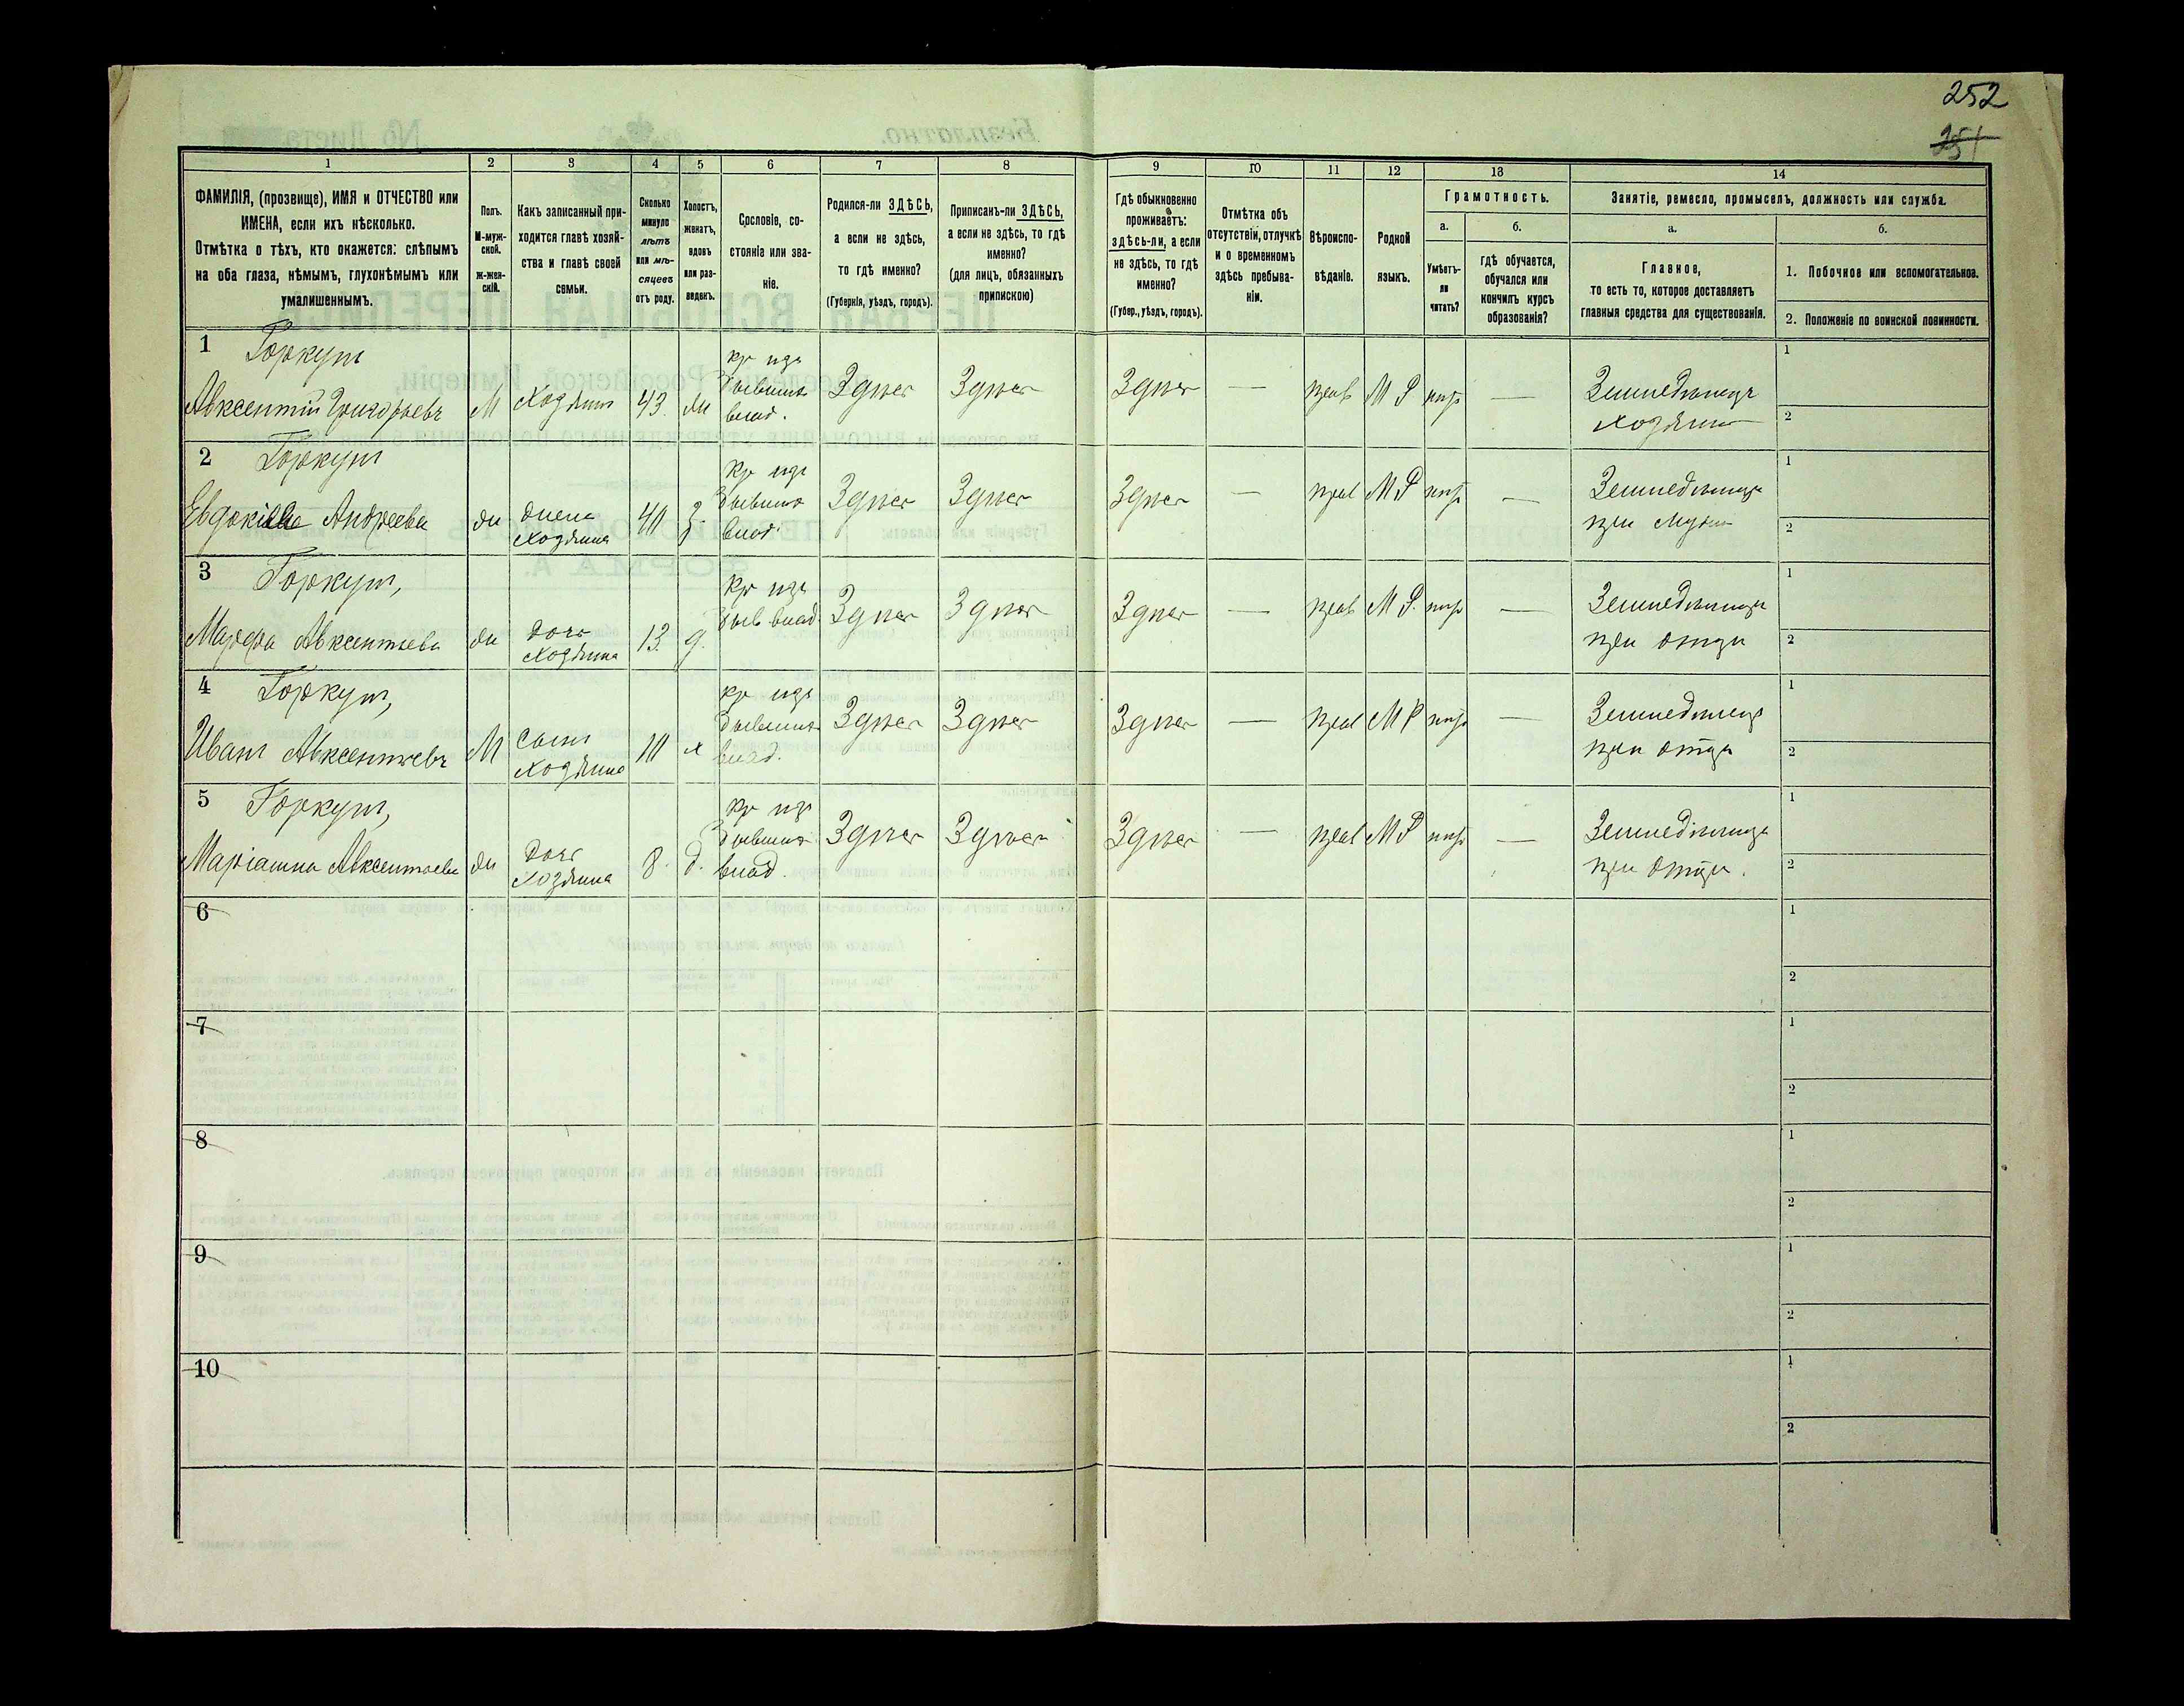 252
251
1 2 3 4 5 6 7 8 9 10 11 12 13 14
ФАМИЛІЯ, (прозвище), ИМЯ и ОТЧЕСТВО или
ИМЕНА, если ихъ нѣсколько.
Отмѣтка о тѣхъ, кто окажется: слѣпымъ
на оба глаза, нѣмымъ, глухонѣмымъ или
умалишеннымъ.
Полъ.
М-муж-
ской.
ж-жен-
скій.
Какъ записанный при-
ходится главѣ хозяй-
ства и главѣ своей
семьи.
Сколько
минуло
лѣтъ
или мѣ-
сяцевъ
отъ роду.
Холостъ,
женатъ,
вдовъ
или раз-
веденъ.
Сословіе, со-
стояніе или зва-
ніе.
Родился-ли ЗДѢСЬ,
а если не здѣсь,
то гдѣ именно?
(Губернія, уѣздъ, городъ).
Приписанъ-ли ЗДѢСЬ,
а если не здѣсь, то гдѣ
именно?
(для лицъ, обязанныхъ
припискою)
Гдѣ обыкновенно
проживаетъ:
здѣсь-ли, а если
не здѣсь, то гдѣ
именно?
(Губер., уѣздъ, городъ).
Отмѣтка объ
отсутствіи, отлучкѣ
и о временномъ
здѣсь пребыва-
ніи.
Вѣроиспо-
вѣданіе.
Родной
языкъ.
Грамотность.
а.
Умѣетъ-
ли
читать?
б.
гдѣ обучается,
обучался или
кончилъ курсъ
образованія?
Занятіе, ремесло, промыселъ, должность или служба.
а.
Главное,
то есть то, которое доставляетъ
главныя средства для существованія.
б.
1. Побочное или вспомогательное.
2. Положеніе по воинской повинности.
1 Горкутъ
Авксентій Григорьевъ
М
Хозяинъ
43.
жн
кр изъ
бывшихъ
влад.
Здѣсь
Здѣсь
Здѣсь
—
прав
М Р
нгр
—
Земледѣлецъ
хозяинъ
1
2
2 Горкутъ
Евдокія Андреева
жн
жена
хозяина
40
з.
кр изъ
бывших
влад.
Здѣсь
Здѣсь
Здѣсь
—
прав
М Р
нгр
—
Земледѣлица
при мужѣ
1
2
3 Горкутъ,
Марфа Авксентьева
жн
дочь
хозяина
13.
д.
кр изъ
быв влад.
Здѣсь
Здѣсь
Здѣсь
—
прав
М Р.
нгр
—
Земледѣлица
при отцѣ
1
2
4 Горкутъ,
Иванъ Авксентьевъ
М
сынъ
хозяина
10
х
кр изъ
бывших
влад.
Здѣсь
Здѣсь
Здѣсь
—
прав
М Р
нгр
—
Земледѣлецъ
при отцѣ
1
2
5 Горкутъ,
Маріанна Авксентьева
жн
дочь
хозяина
8.
д.
кр изъ
бывших
влад.
Здѣсь
Здѣсь
Здѣсь
—
прав
М Р
нгр
—
Земледѣлица
при отцѣ.
1
2
6
1
2
7
1
2
8
1
2
9
1
2
10
1
2